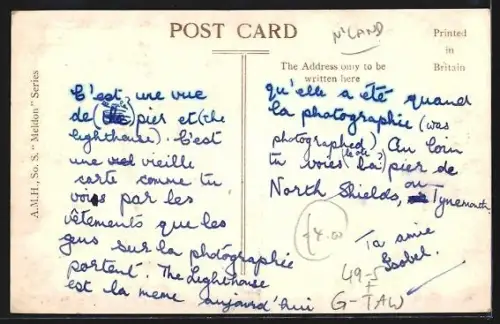 POST CARD
N'LAND
Printed
in
Britain
The Address only to be
written here
A.M.H., So. S. "Meldon" Series
C'est une vue
de (the) pier et (the
lighthouse). C'est
une vieille
carte comme tu
vois par les
vêtements que les
gens sur la photographie
portent. The Lighthouse
est la meme aujourd'hui
qu'elle a été quand
la photographie (was
photographed). Au loin
tu voies la pier de
North Shields, ou
Tynemouth
Ta amie
Isobel.
£4.00
49-5
+
G-TAW